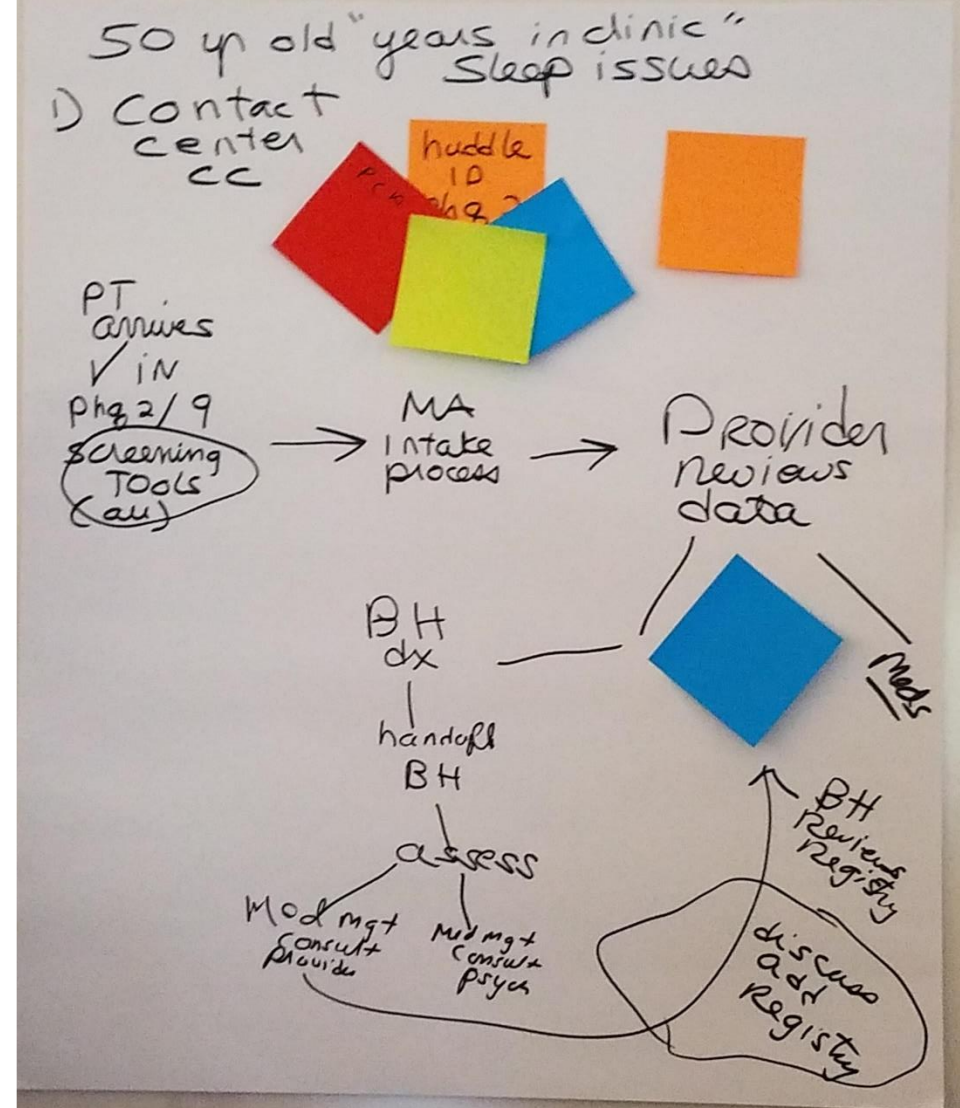 50 yr old "years in clinic"
Sleep issues
1) Contact
center
CC
huddle
ID
phq 2
PT
arrives
✓ iN
phq 2/9
Screening
TOOLS
(all)
MA
intake
process
Provider
reviews
data
BH
dx
Meds
handoff
BH
assess
Med mgt
consult
provider
Med mgt
consult
psych
BH
Reviews
Registry
discuss
add
Registry